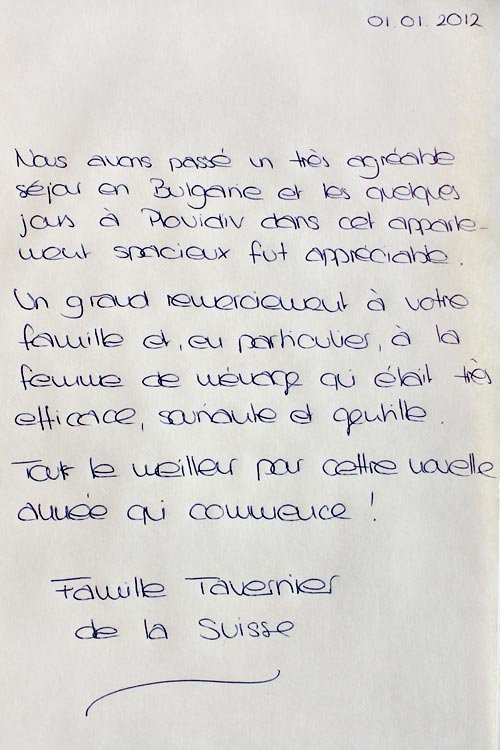 01.01.2012
Nous avons passé un très agréable
séjour en Bulgarie et les quelques
jours à Plovidiv dans cet apparte-
ment spacieux fut appréciable.
Un grand remerciement à votre
famille et, en particulier, à la
femme de ménage qui était très
efficace, souriante et gentille.
Tout le meilleur pour cettre nouvelle
année qui commence !
Famille Tavernier
de la Suisse